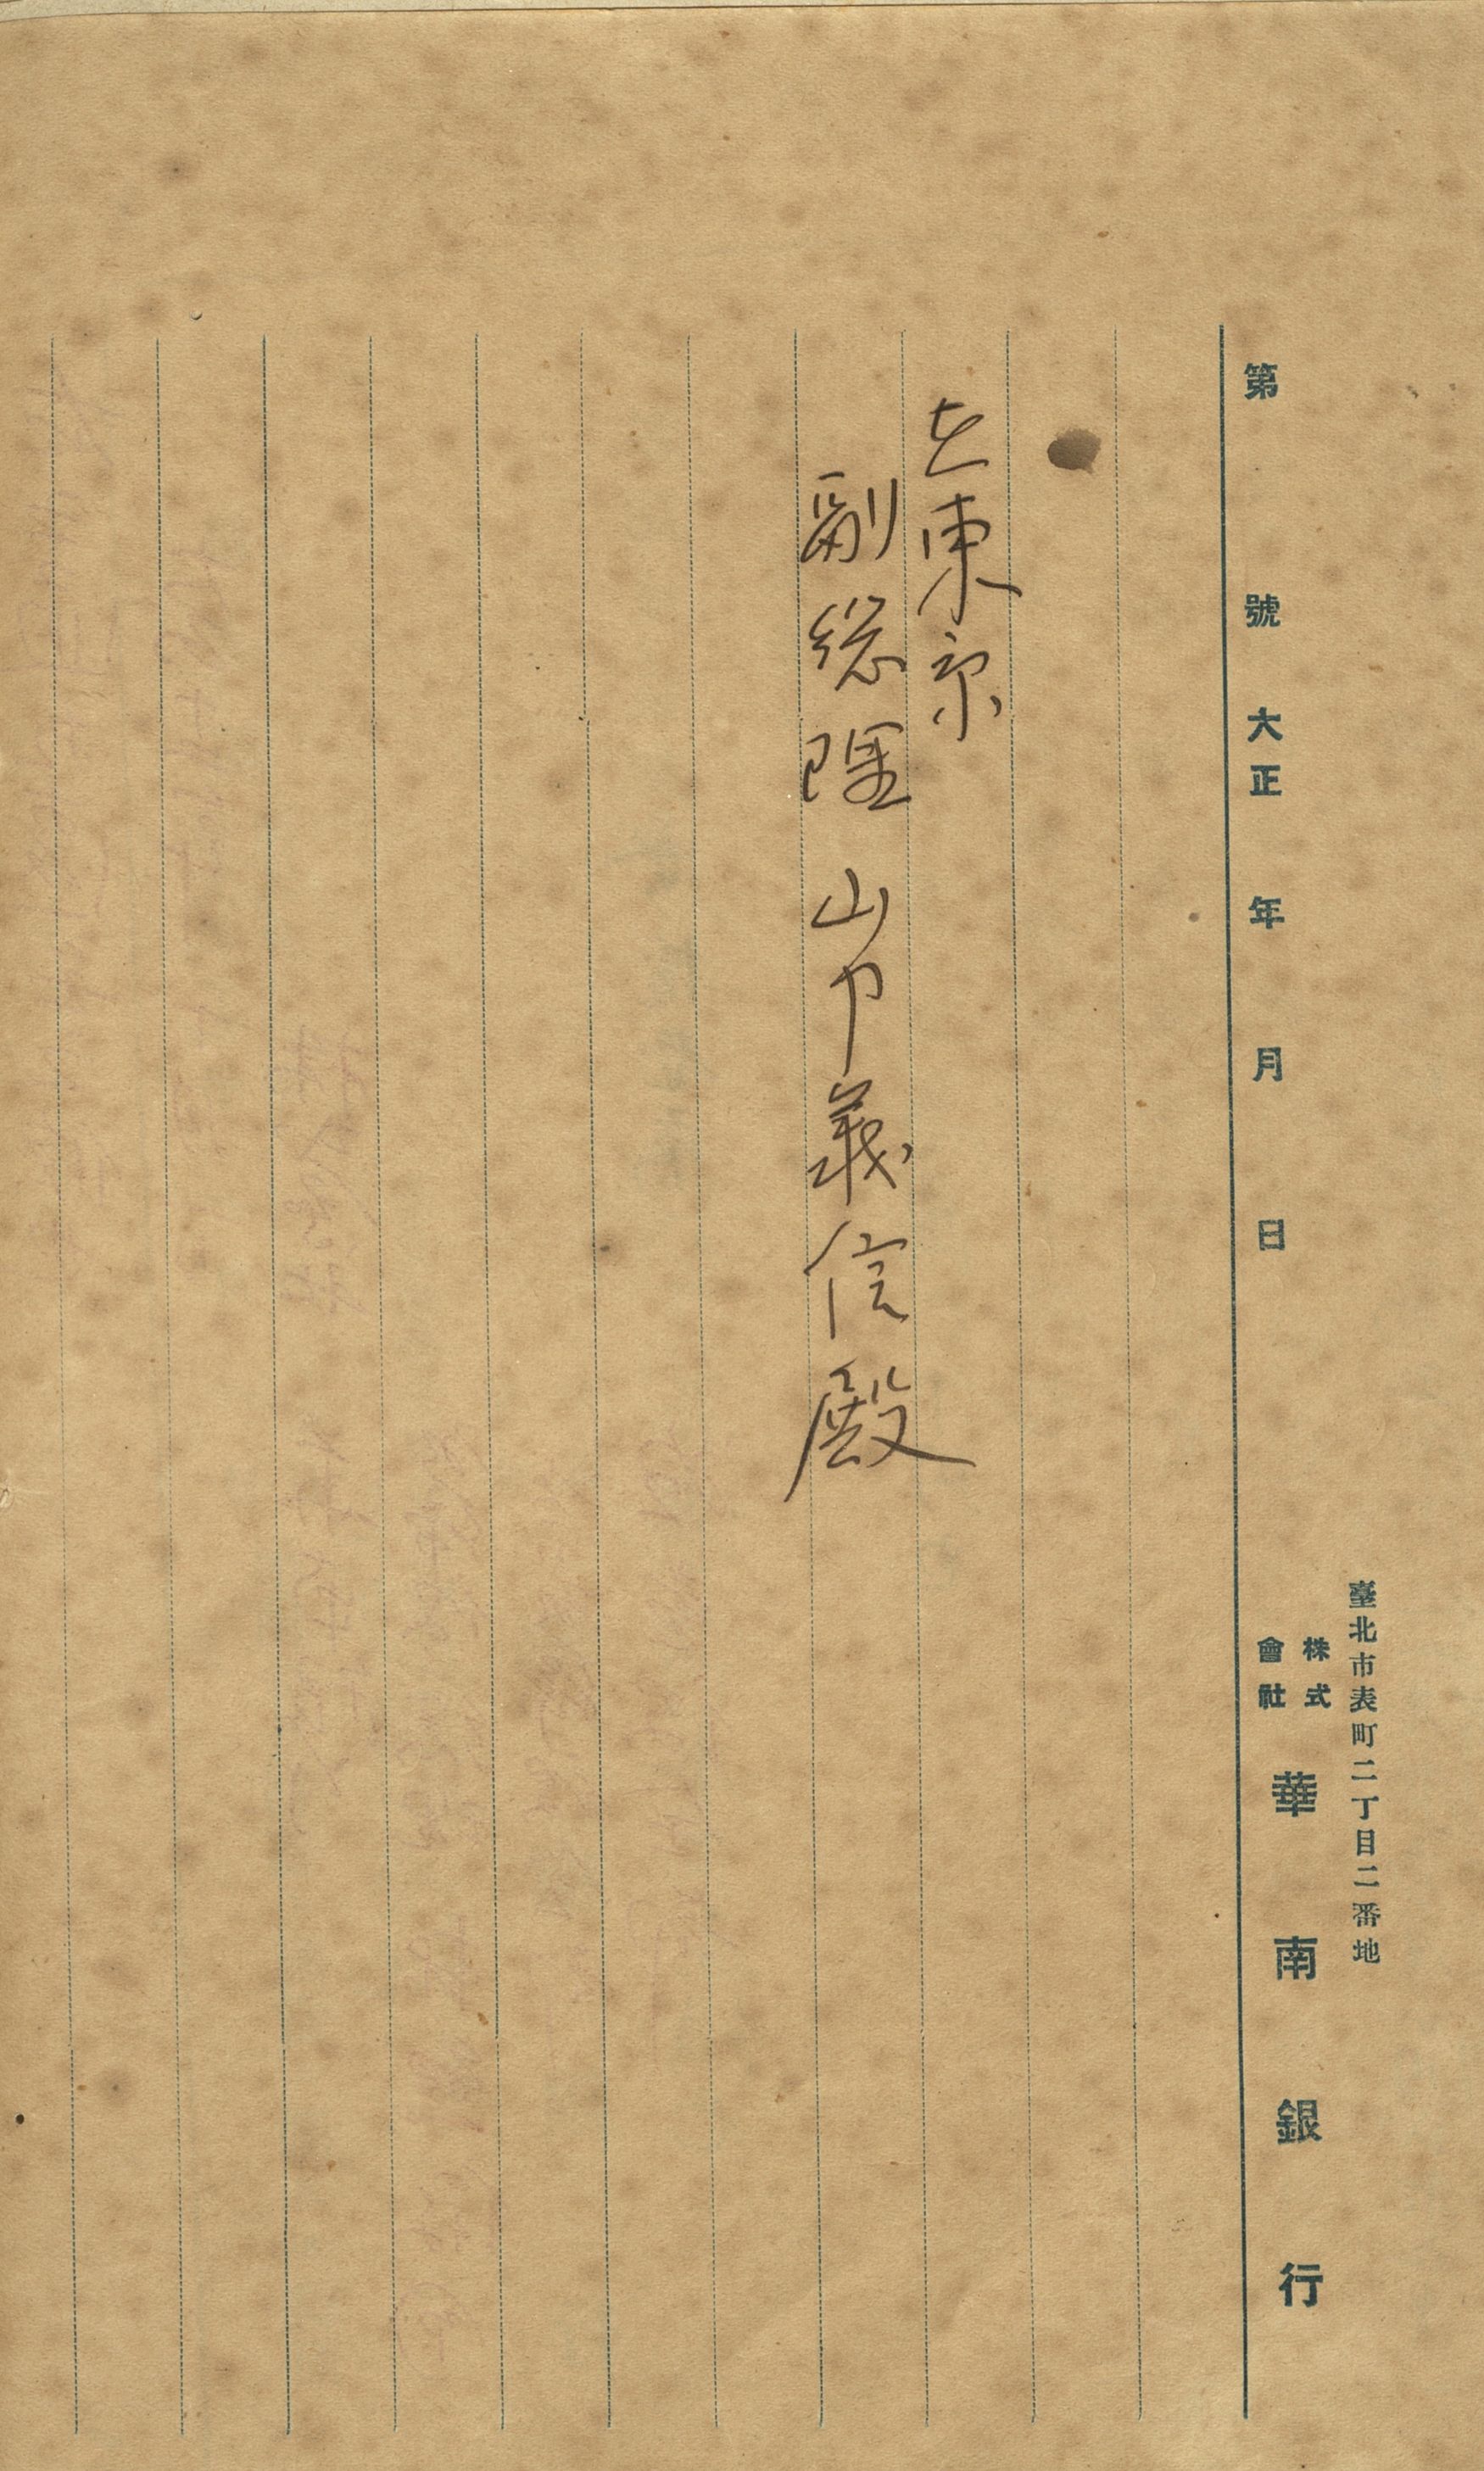 臺北市表町二丁目二番地
第 號 大正 年 月 日 株式會社 華南銀行
在東京
副総理 山中義信殿